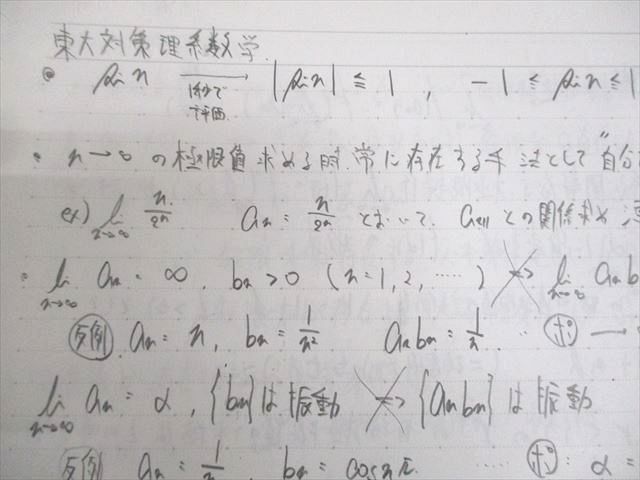 東大対策理系数学
sin n → |sin n| ≦ 1 , -1 ≦ sin n ≦ 1
評価
・ n→∞ の極限値求める時、常に存在する手法として"自分
ex) lim n→∞ n/2ⁿ aₙ = n/2ⁿ とおいて、aₙ₊₁ との関係求め
・ lim n→∞ aₙ = ∞ , bₙ > 0 (n=1,2,……) ⇏ lim n→∞ aₙb
反例 aₙ = n , bₙ = 1/n² aₙbₙ = 1/n … ポ →
lim n→∞ aₙ = α , {bₙ}は振動 ⇏ {aₙbₙ}は振動
反例 aₙ = 1/n , bₙ = cos nπ …… ポ: α =